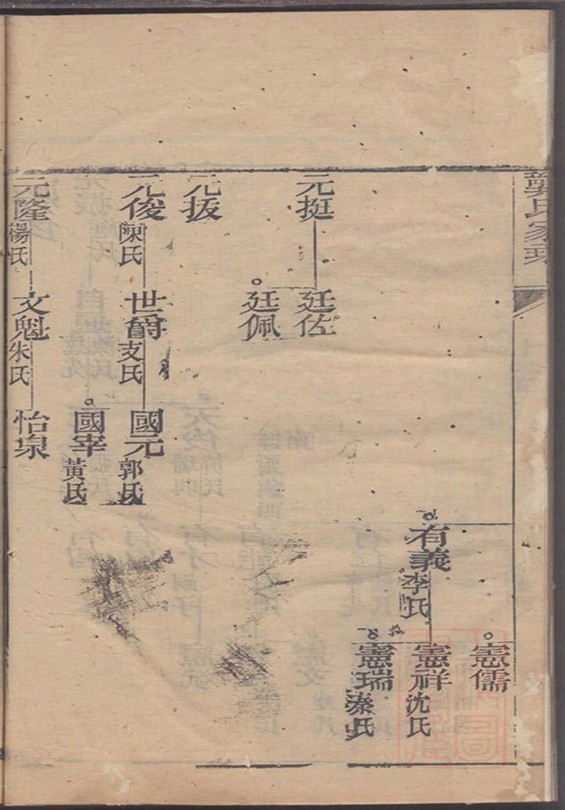 龔氏家
憲儒
有義 李氏
憲祥 沈氏
憲瑞 秦氏
元挺
廷佐
廷佩
元拔
元俊 陳氏
世爵 支氏
國元 郭氏
國宰 黃氏
元隆 楊氏
文魁 朱氏
怡泉